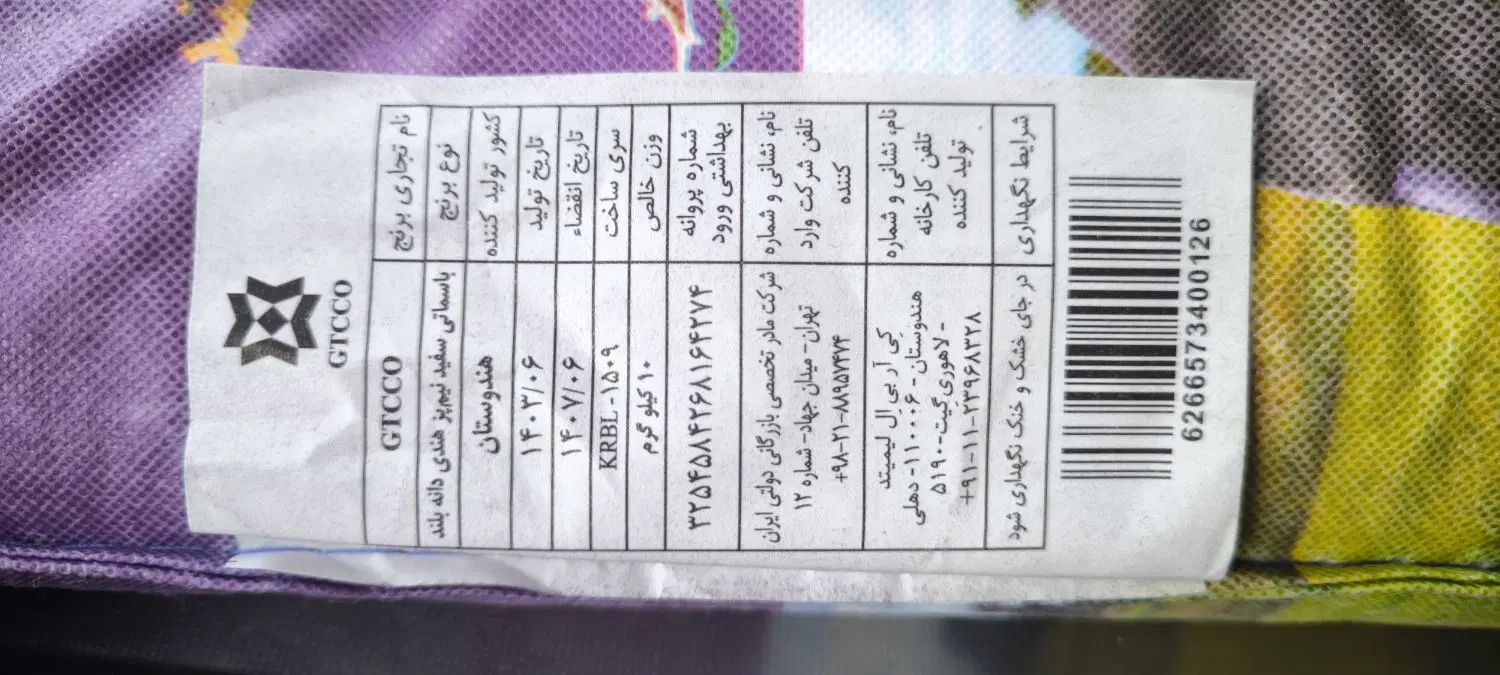 GTCCO
نام تجاری برنج GTCCO
نوع برنج باسماتی سفید نیم‌پز هندی دانه بلند
کشور تولید کننده هندوستان
تاریخ تولید ۱۴۰۳/۰۶
تاریخ انقضاء ۱۴۰۷/۰۶
سری ساخت KRBL-۱۵۰۹
وزن خالص ۱۰ کیلو گرم
شماره پروانه
بهداشتی ورود
۳۲۵۴۵۸۴۲۶۸۱۶۴۲۷۴
نام، نشانی و شماره
تلفن شرکت وارد
کننده
شرکت مادر تخصصی بازرگانی دولتی ایران
تهران- میدان جهاد- شماره ۱۲
+۹۸-۲۱-۸۸۹۵۷۴۷۴
نام، نشانی و شماره
تلفن کارخانه
تولید کننده
کی آر بی ال لیمیتد
هندوستان - ۱۱۰۰۰۶- دهلی
- لاهوری گیت-۵۱۹۰
+۹۱-۱۱-۲۳۹۶۸۳۲۸
شرایط نگهداری در جای خشک و خنک نگهداری شود
6266573400126